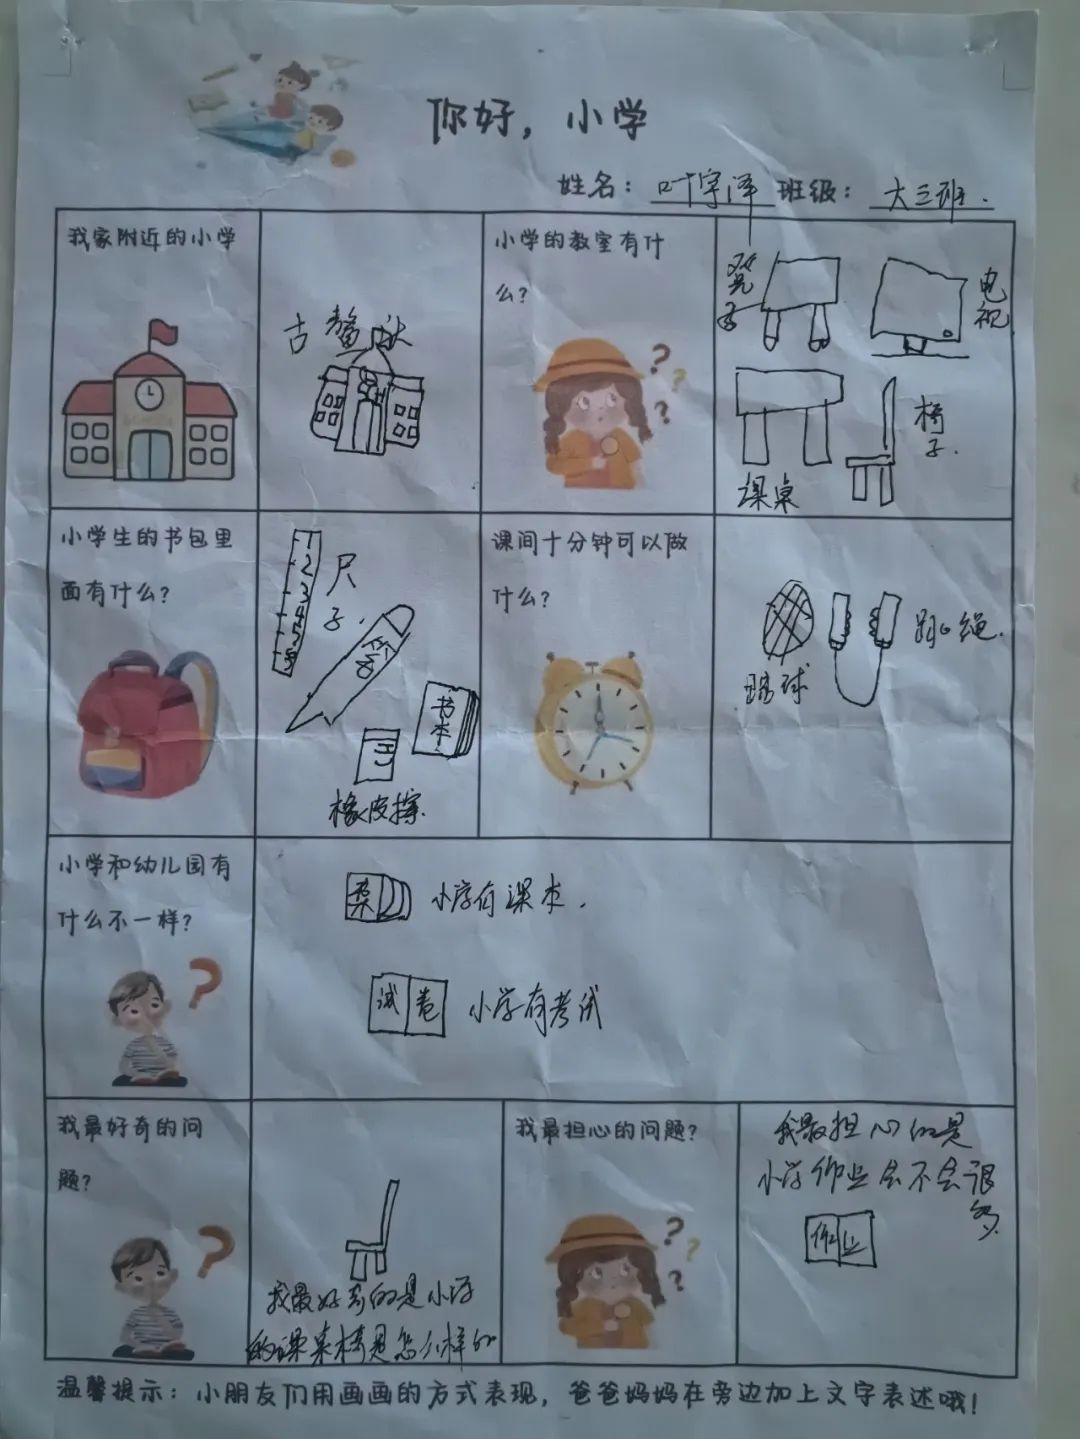 你好，小学
姓名：叶宇泽 班级：大三班.
我家附近的小学
古鳌
小学的教室有什
么？
凳子
电视
课桌
椅子.
小学生的书包里
面有什么？
1
2
3
4
5
尺子.
笔
书本
橡皮擦.
课间十分钟可以做
什么？
球
跳绳.
小学和幼儿园有
什么不一样？
小学有课本.
试卷
小学有考试
我最好奇的问
题？
我最好奇的是小学
的课桌椅是怎么样的
我最担心的问题？
我最担心的是
小学作业会不会很
多.
作业
温馨提示：小朋友们用画画的方式表现，爸爸妈妈在旁边加上文字表述哦！